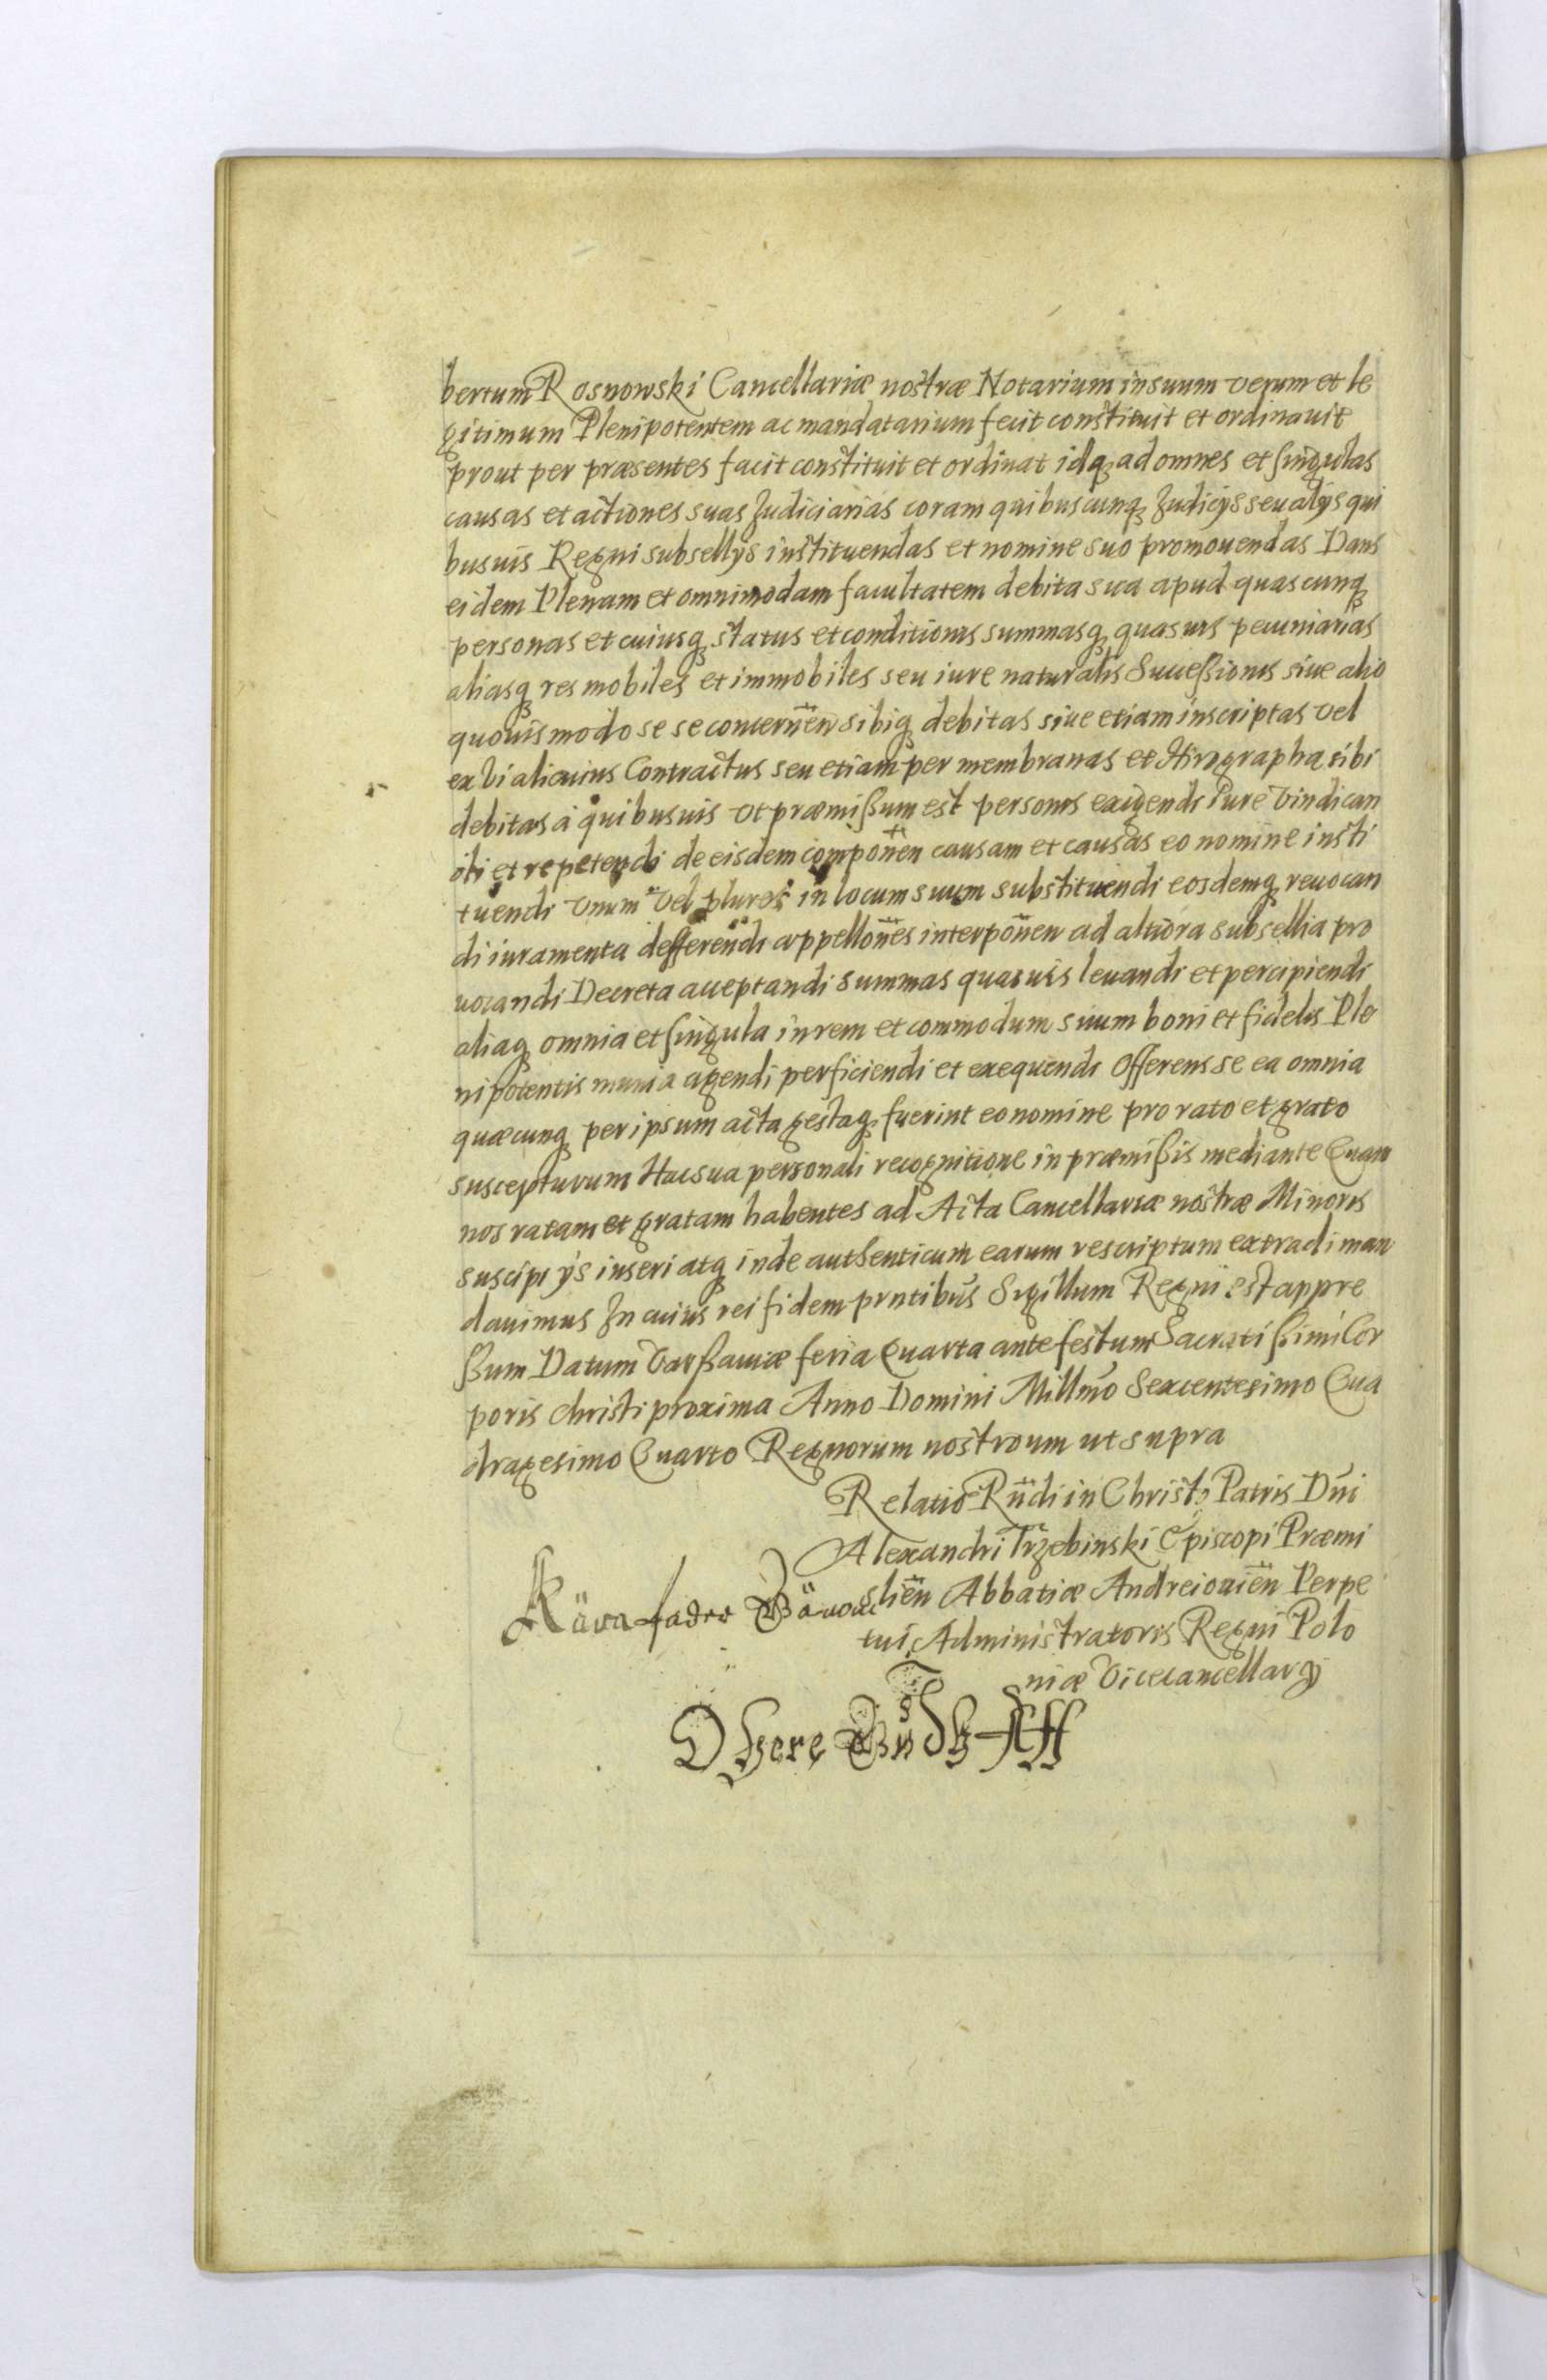 bertum Rosnowski Cancellariæ nostræ Notarium in suum verum et le
gitimum Plenipotentem ac mandatarium fecit constituit et ordinauit
prout per præsentes facit constituit et ordinat idq ad omnes et singulas
causas et actiones suas Judiciarias coram quibuscunq Judicÿs seu alÿs qui
busuis Regni subsellÿs instituendas et nomine suo promouendas Dans
eidem Plenam et omnimodam facultatem debita sua apud quascunq
personas et cuiusq status et conditionis summasq quasuis pecuniarias
aliasq res mobiles et immobiles seu iure naturalis Suceßionis siue alio
quouismodo se se concernen sibiq debitas siue etiam inscriptas vel
ex vi alicuius Contractus seu etiam per membranas et Hirographa sibi
debitas à quibusuis vt præmißum est personis exigendi iure vindican
di et repetendi de eisdem componen causam et causas eo nomine insti
tuendi vnum vel plures in locum suum substituendi eosdemq reuocan
di iuramenta defferendi appellones interponen ad altiora subsellia pro
uocandi Decreta acceptandi summas quasuis leuandi et percipiendi
aliaq omnia et singula in rem et commodum suum boni et fidelis Ple
nipotentis munia agendi perficiendi et exequendi Offerens se ea omnia
quæcunq per ipsum acta gestaq fuerint eo nomine pro rato et grato
suscepturum Hac sua personali recognitione in præmißis mediante Quam
nos ratam et gratam habentes ad Acta Cancellariæ nostræ Minoris
suscipi ÿs inseri atq inde authenticum earum rescriptum extradi man
dauimus In cuius rei fidem prntibus Sigillum Regni est appre
ßum Datum Varßauiæ feria Quarta ante festum Sacratißimi Cor
poris christi proxima Anno Domini Millmo Sexcentesimo Qua
dragesimo Quarto Regnorum nostroum ut supra
Relatio Rndi in Christo Patris Dni
Alexandri Trzebinski Episcopi Præmi
slien Abbatiæ Andreiouien Perpe
Kära fader
tui Administratoris Regni Polo
niæ Vicecancellarÿ